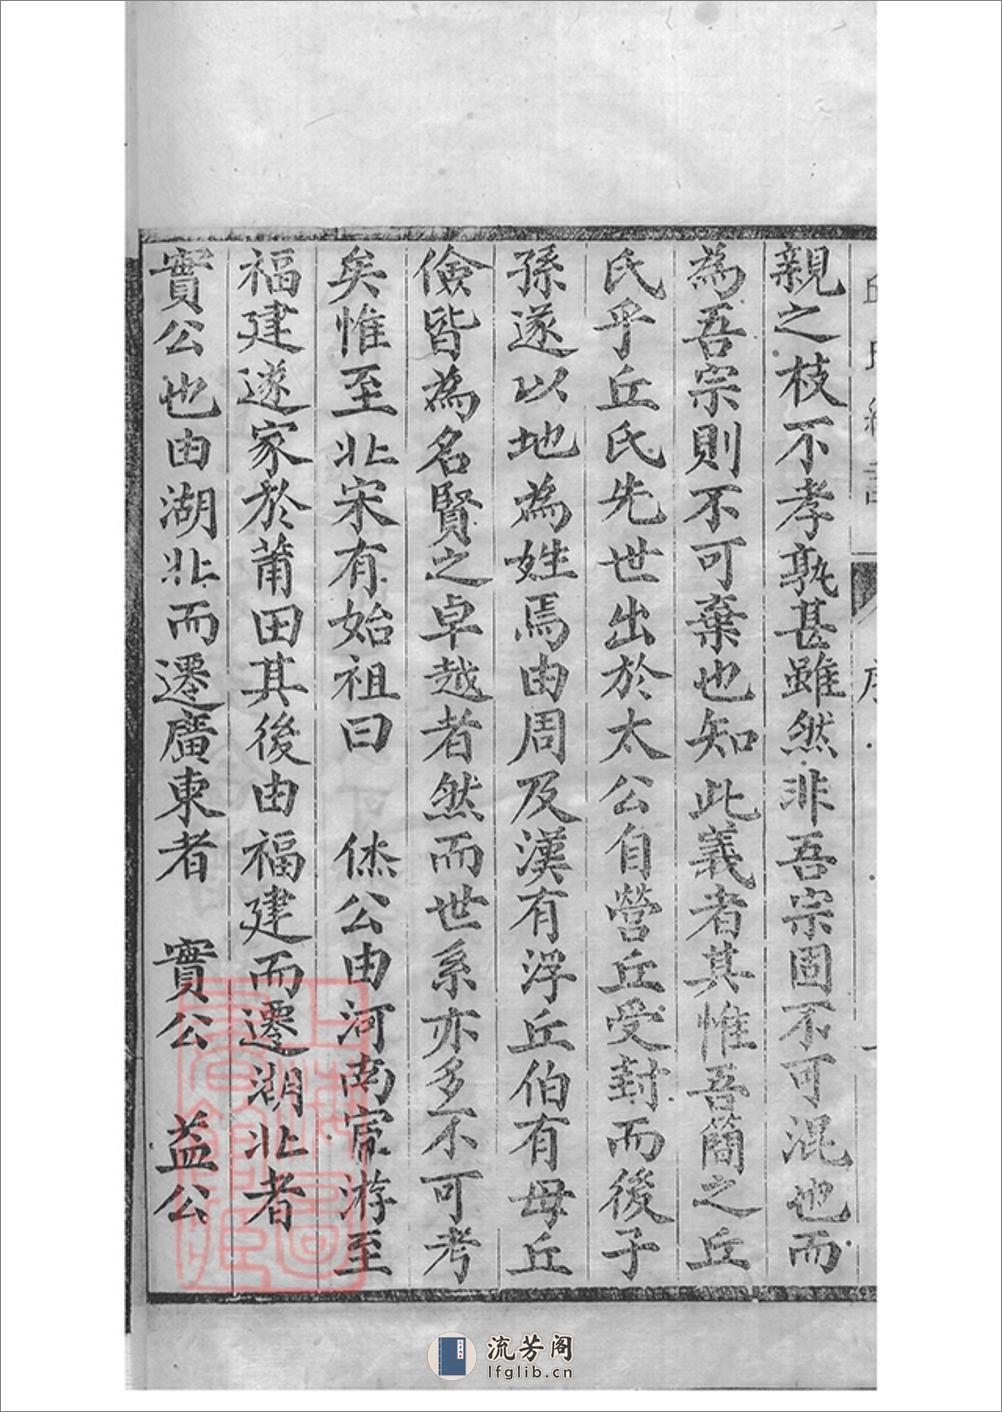 親之枝不孝孰甚雖然非吾宗固不可混也而
為吾宗則不可棄也知此義者其惟吾簡之丘
氏乎丘氏先世出於太公自營丘受封而後子
孫遂以地為姓焉由周及漢有浮丘伯有毋丘
儉皆為名賢之卓越者然而世系亦多不可考
矣惟至北宋有始祖曰 烋公由河南宦游至
福建遂家於莆田其後由福建而遷湖北者
實公也由湖北而遷廣東者 實公 益公
序
流芳阁
lfglib.cn